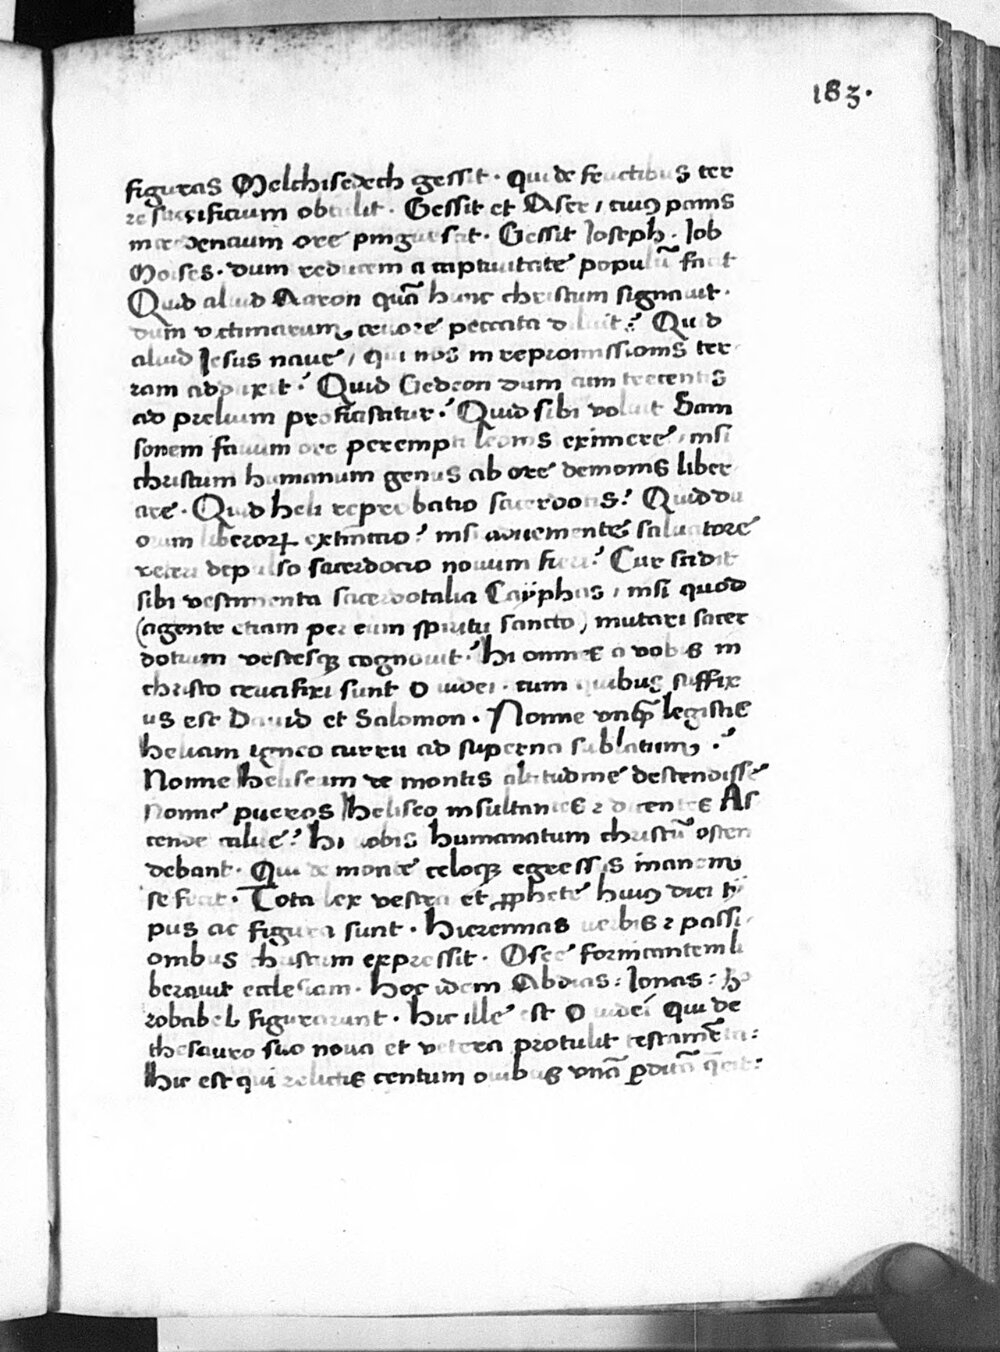 183.
figuras Melchisedech gessit. qui de fructibus ter
re sacrificium obtulit. Gessit et Aser, cuiꝰ panis
mœdencium ore pinguescat. Gessit Joseph. Job
Moises. dum reducem a captiuitate populū facit
Quid aliud Aaron quā hunc christum signauit.
dum victimarum cruore peccata diluit? Quid
aliud Jesus naue, qui nos in repromissionis ter
ram adduxit? Quid Gedeon dum cum trecentis
ad prelium proficiscatur? Quid sibi voluit Sam
sonem fauum ore perempti leonis eximere, nisi
christum humanum genus ab ore demonis liber
are. Quid heli reprobatio sacerdotis? Quid du
orum liberorꝝ extinctio? nisi adueniente saluatore
veteri depulso sacerdocio nouum fieri? Cur scidit
sibi vestimenta sacerdotalia Cayphas, nisi quod
(agente etiam per eum spiritu sancto) mutari sacer
dotium vestesqꝫ cognouit? hi omnes a vobis in
christo crucifixi sunt O iudei. cum quibus suffix
us est Dauid et Salomon. Nonne vnqꝫ legistis
heliam igneo curru ad superna sublatum?
Nonne heliseum de montis altitudine descendisse
Nonne pueros heliseo insultantes ⁊ dicentes As
cende calue? hi vobis humanatum christū osten
debant. Qui de monte celoqꝫ egressus inanem
se fecit. Tota lex vestra et ꝓphete huiꝰ diei ti
pus ac figura sunt. Hieremias verbis ⁊ passi
onibus christum expressit. Osee fornicantem li
berauit ecclesiam. Hoc idem Abdias: Jonas: Zo
robabel figurarunt. hic ille est O iudei qui de
thesauro suo noua et vetera protulit testamēta:
hic est qui relictis centum ouibus vnā ꝑditā q̄rit: